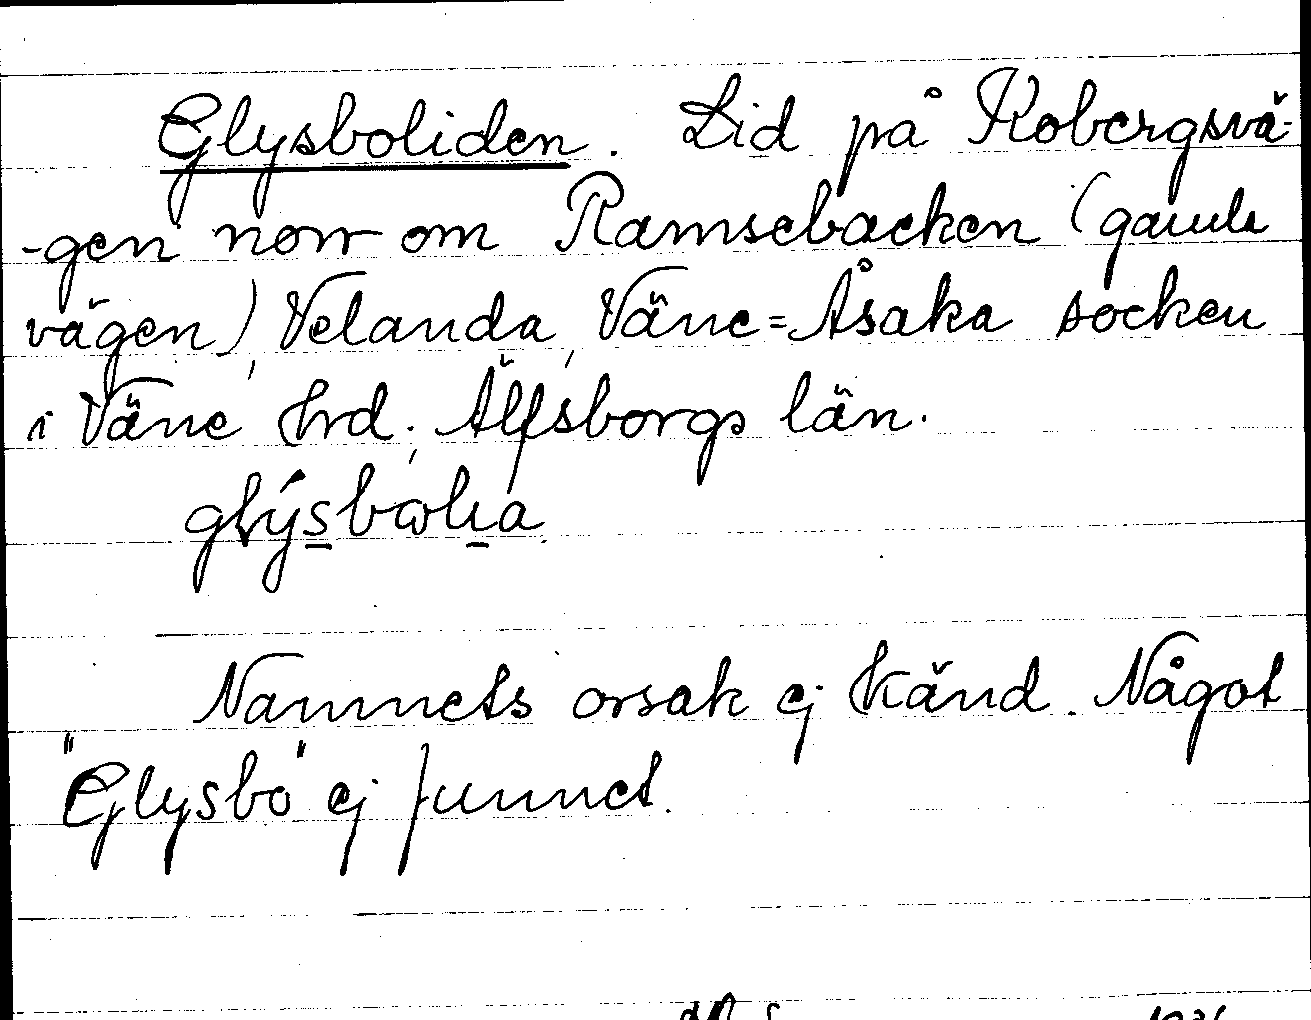 Glysboliden. Lid på Kobergsvä-
-gen norr om Ramsebacken (gamla
vägen), Velanda, Väne=Åsaka socken
i Väne hrd, Älfsborgs län.
Namnets orsak ej känd. Något
"Glysbo" ej funnet.